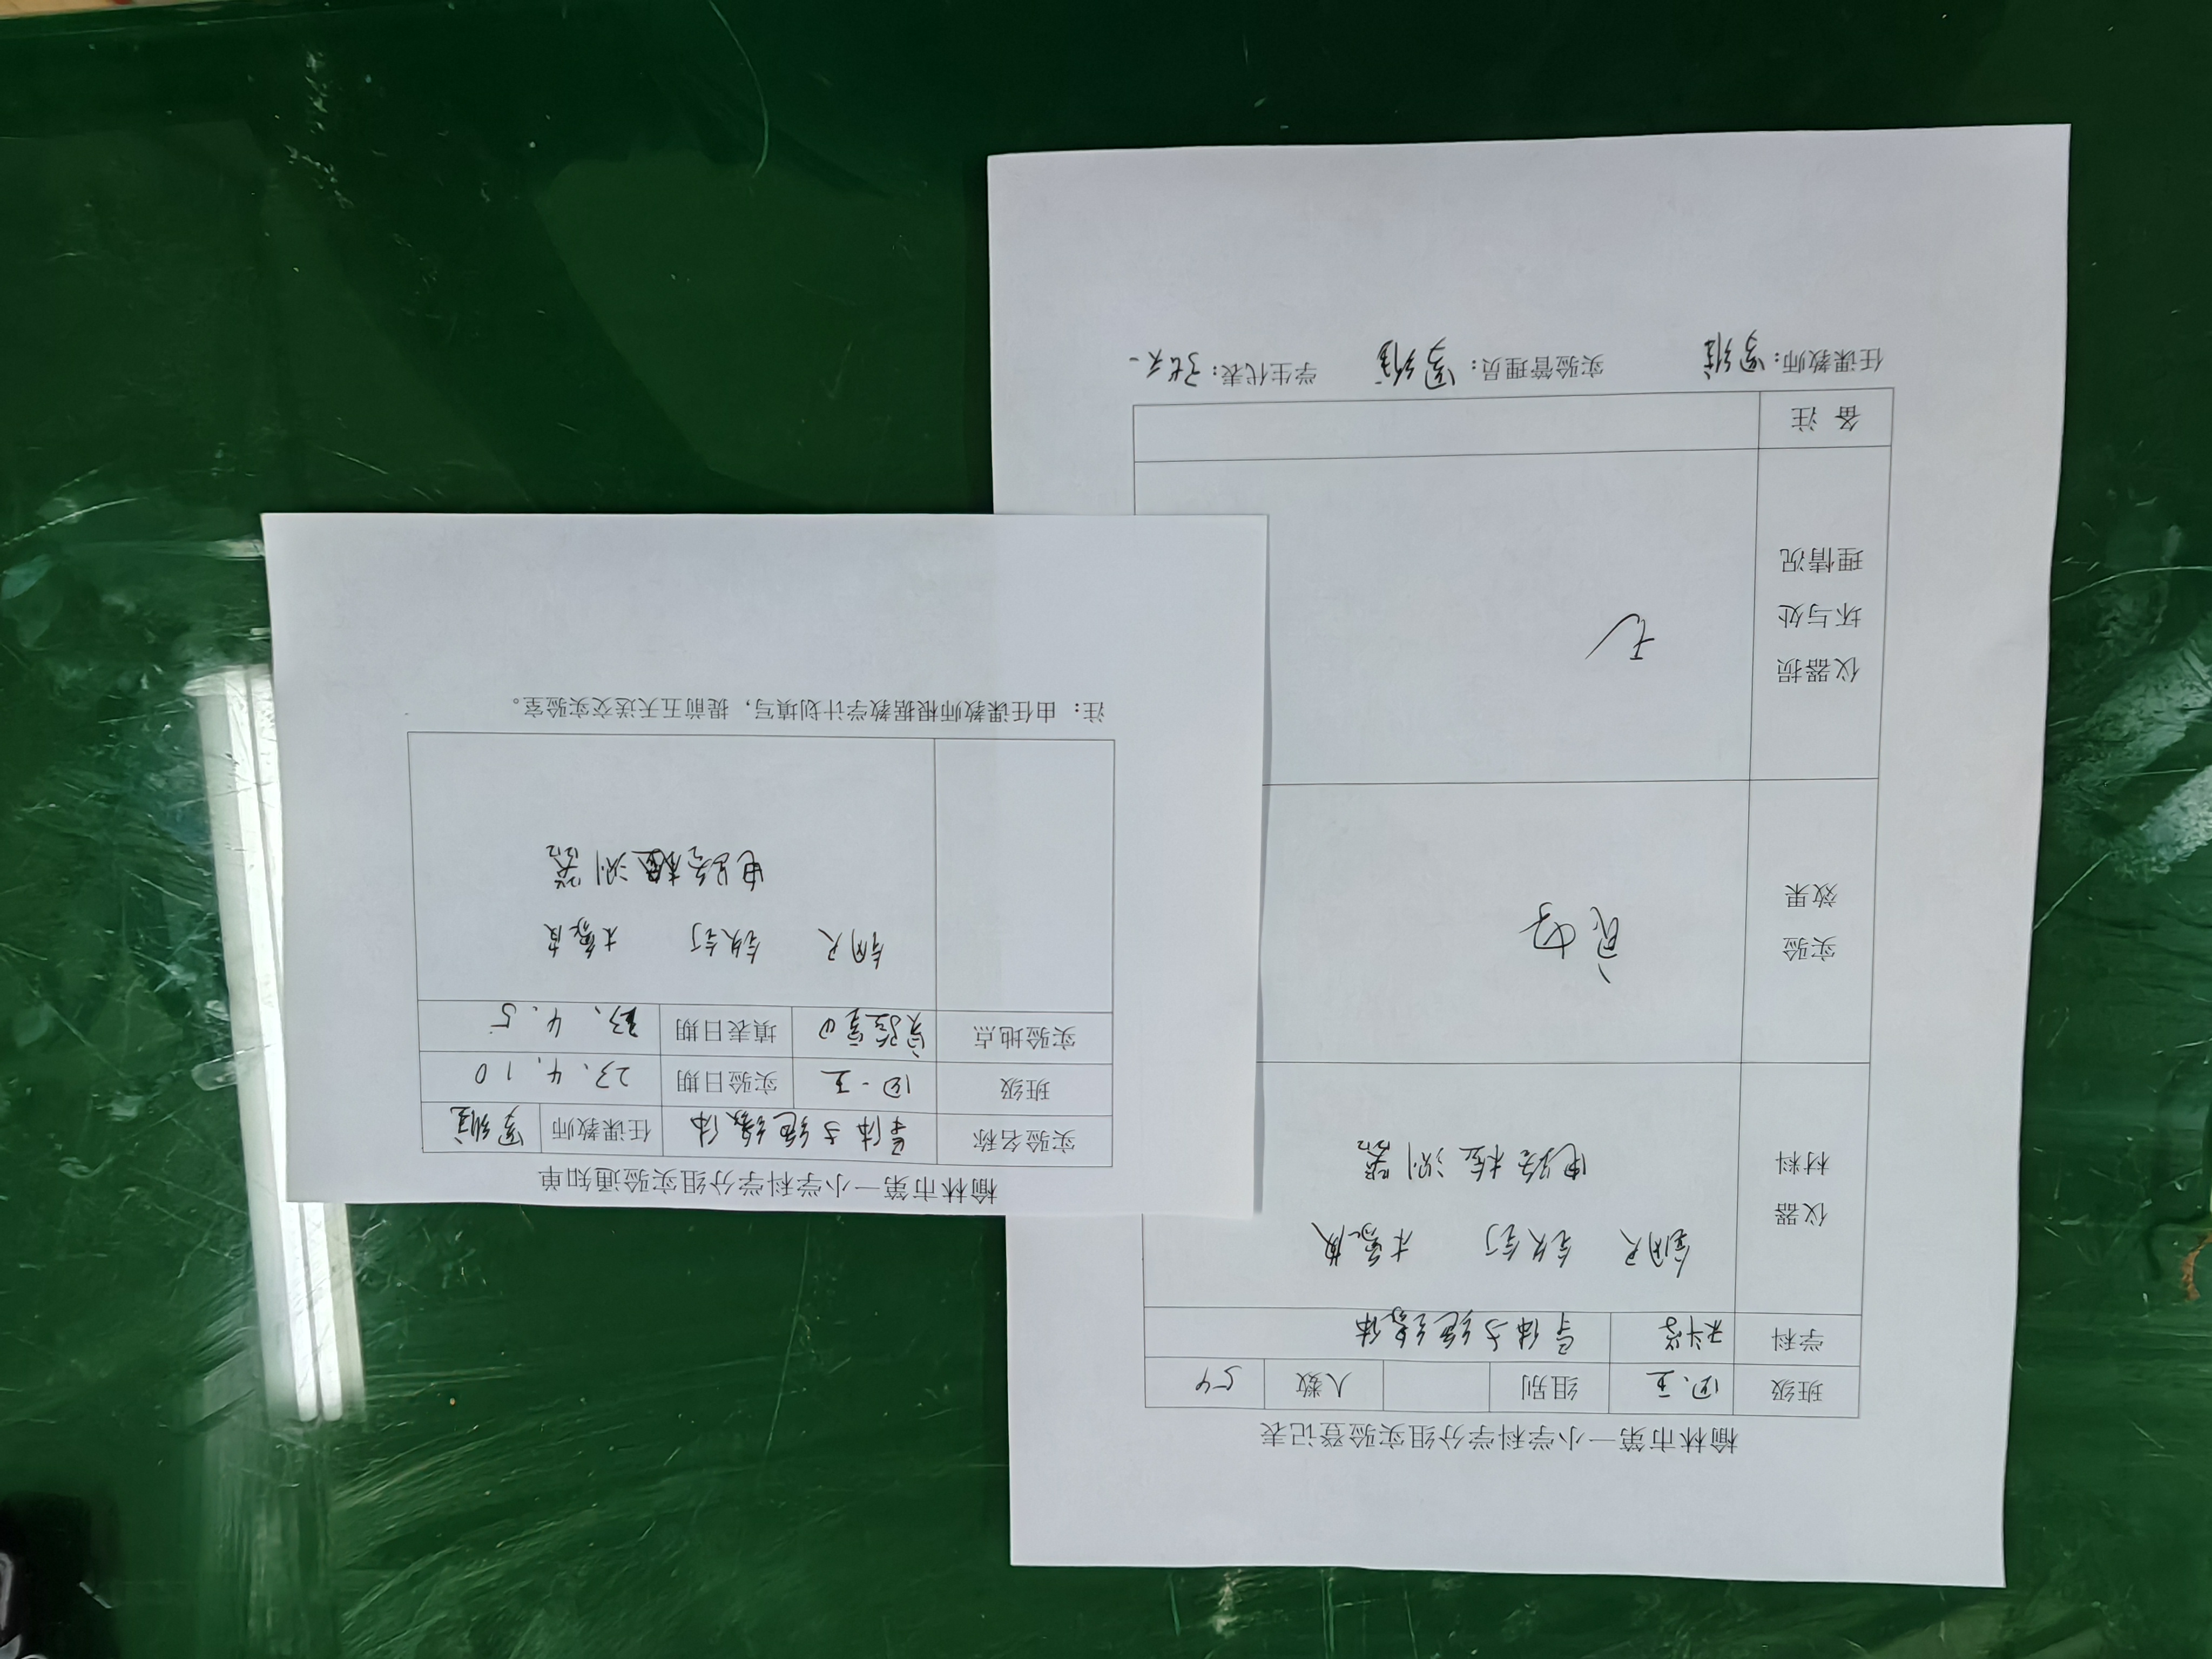 榆林市第一小学科学分组实验登记表
班级 四.五 组别 人数 54
学科 科学 导体与绝缘体
仪器材料 钢尺 铁钉 木 橡皮
电路检测器
实验效果 良好
仪器损坏与处理情况 无
备 注
任课教师: 实验管理员: 学生代表:
榆林市第一小学科学分组实验通知单
实验名称 导体与绝缘体 任课教师
班级 四.五 实验日期 23.4.10
实验地点 实验室 填表日期 23.4.5
钢尺 铁钉 木 橡皮
电路检测器
注: 由任课教师根据教学计划填写, 提前五天送交实验室。